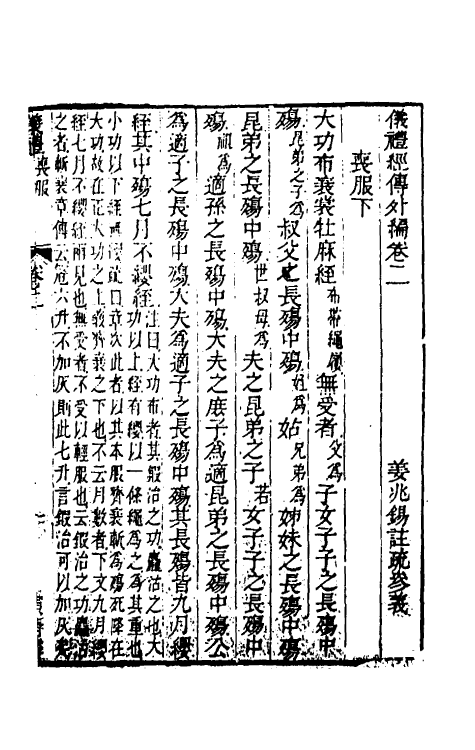 儀禮經傳外編卷二
姜兆錫註疏參義
喪服下
大功布衰裳牡麻絰布帶繩屨無受者父爲子女子子之長殤中
殤昆弟之子爲叔父之長殤中殤姪爲姑兄弟爲姊妹之長殤中殤
昆弟之長殤中殤世叔母爲夫之昆弟之子若女子子之長殤中
殤祖爲適孫之長殤中殤大夫之庶子爲適昆弟之長殤中殤公
爲適子之長殤中殤大夫爲適子之長殤中殤其長殤皆九月纓
絰其中殤七月不纓絰注曰大功布者其鍛治之功麤治之也大
功以上絰有纓以一條繩爲之爲其重也
小功以下絰無纓疏曰章次此者以其本服齊衰斬爲殤死降在
大功故在正大功之上義齊衰之下也不云月數者下文九月纓
絰七月不纓絰兩見也無受者不受以輕服也云鍛治之功麤治
之者斬衰章傳云冠六升不加灰則此七升言鍛治可以加灰矣
喪服
卷二